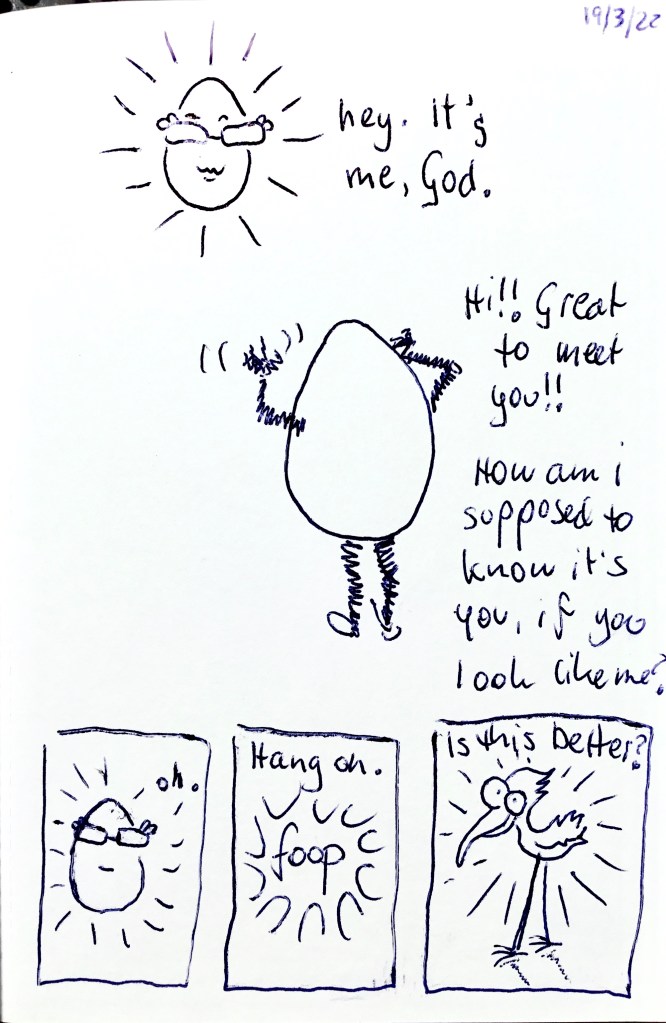 19/3/22
hey. it's
me, God.
Hi!! Great
to meet
you!!
How am i
supposed to
know it's
you, if you
look like me?
oh.
Hang on.
foop
is this better?